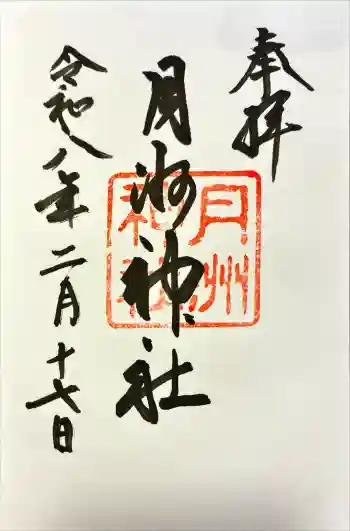 奉拝
月洲神社
月州神社
令和八年二月十七日